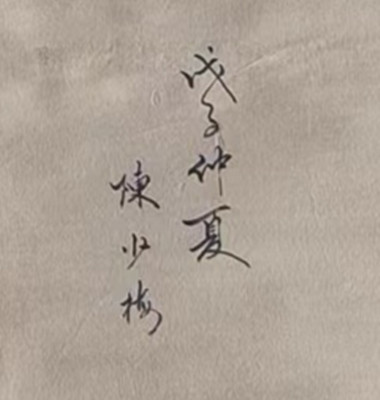 戊子仲夏
陳少梅